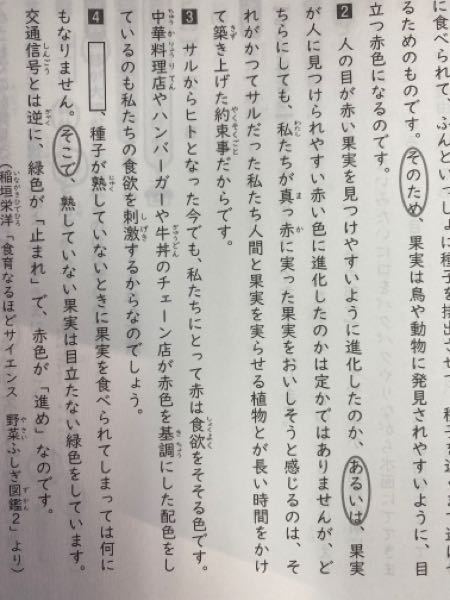 に食べられて、ふんといっしょに種子を排出させて、種子を運
るためのものです。そのため、果実は鳥や動物に発見されやすいように、目
立つ赤色になるのです。
2 人の目が赤い果実を見つけやすいように進化したのか、あるいは、果実
が人に見つけられやすい赤い色に進化したのかは定かではありませんが、ど
ちらにしても、私たちが真っ赤に実った果実をおいしそうと感じるのは、そ
れがかつてサルだった私たち人間と果実を実らせる植物とが長い時間をかけ
て築き上げた約束事だからです。
3 サルからヒトとなった今でも、私たちにとって赤は食欲をそそる色です。
中華料理店やハンバーガーや牛丼のチェーン店が赤色を基調にした配色をし
ているのも私たちの食欲を刺激するからなのでしょう。
4 、種子が熟していないときに果実を食べられてしまっては何に
もなりません。そこで、熟していない果実は目立たない緑色をしています。
交通信号とは逆に、緑色が「止まれ」で、赤色が「進め」なのです。
(稲垣栄洋「食育なるほどサイエンス 野菜ふしぎ図鑑2」より)